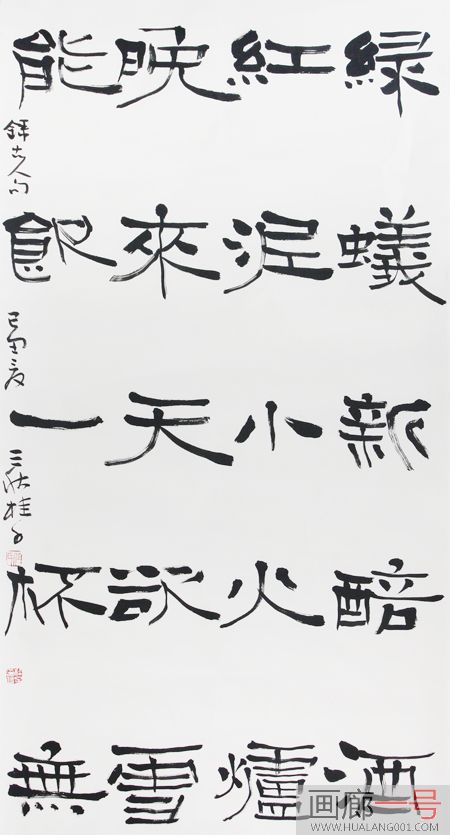 綠蟻新醅酒
紅泥小火爐
晚來天欲雪
能飲一杯無
錄古人句
三秋桂子
画廊一号
WWW.HUALANG001.COM